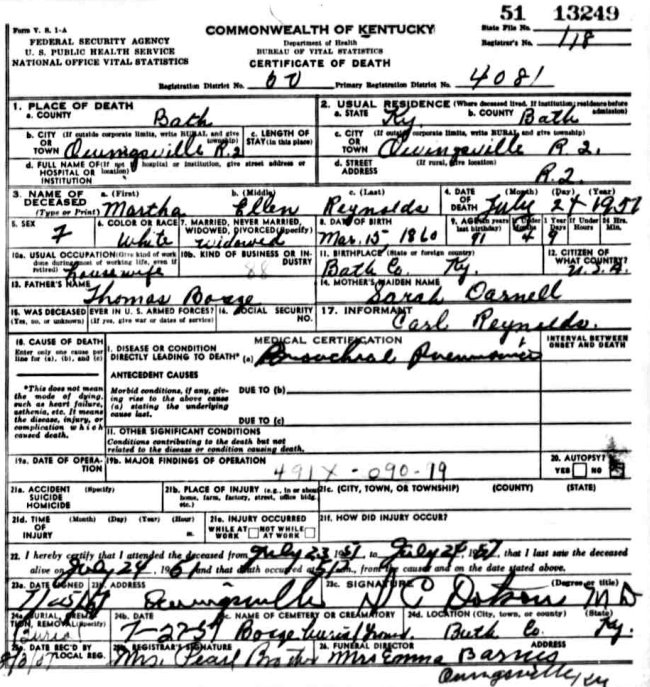 Form V. S. 1-A
FEDERAL SECURITY AGENCY
U. S. PUBLIC HEALTH SERVICE
NATIONAL OFFICE VITAL STATISTICS
COMMONWEALTH OF KENTUCKY
Department of Health
BUREAU OF VITAL STATISTICS
CERTIFICATE OF DEATH
51 13249
State File No.
Registrar's No. 118
Registration District No. 60 Primary Registration District No. 4081
1. PLACE OF DEATH
a. COUNTY Bath
b. CITY (If outside corporate limits, write RURAL and give township)
OR
TOWN Owingsville R.2
c. LENGTH OF
STAY (in this place)
d. FULL NAME OF (If not in hospital or institution, give street address or location)
HOSPITAL OR
INSTITUTION
2. USUAL RESIDENCE (Where deceased lived. If institution: residence before admission)
a. STATE Ky. b. COUNTY Bath
c. CITY (If outside corporate limits, write RURAL and give township)
OR
TOWN Owingsville R.2.
d. STREET (If rural, give location)
ADDRESS R.2.
3. NAME OF DECEASED (Type or Print)
a. (First) b. (Middle) c. (Last)
Martha Ellen Reynolds
4. DATE OF DEATH (Month) (Day) (Year)
July 24 1951
5. SEX
F
6. COLOR OR RACE
White
7. MARRIED, NEVER MARRIED, WIDOWED, DIVORCED (Specify)
Widowed
8. DATE OF BIRTH
Mar. 15, 1860
9. AGE (In years last birthday) If Under 1 Year If Under 24 Hrs.
Months Days Hours Min.
91 4 9
10a. USUAL OCCUPATION (Give kind of work done during most of working life, even if retired)
housewife
10b. KIND OF BUSINESS OR INDUSTRY
88
11. BIRTHPLACE (State or foreign country)
Bath Co. Ky.
12. CITIZEN OF WHAT COUNTRY?
U.S.A.
13. FATHER'S NAME
Thomas
14. MOTHER'S MAIDEN NAME
Sarah
15. WAS DECEASED EVER IN U.S. ARMED FORCES?
(Yes, no, or unknown) (If yes, give war or dates of service)
16. SOCIAL SECURITY NO.
17. INFORMANT
Carl Reynolds.
18. CAUSE OF DEATH
Enter only one cause per line for (a), (b), and (c)
MEDICAL CERTIFICATION
INTERVAL BETWEEN ONSET AND DEATH
I. DISEASE OR CONDITION
DIRECTLY LEADING TO DEATH* (a) Bronchial Pneumonia
*This does not mean the mode of dying, such as heart failure, asthenia, etc. It means the disease, injury, or complication which caused death.
ANTECEDENT CAUSES
Morbid conditions, if any, giving rise to the above cause (a) stating the underlying cause last.
DUE TO (b)
DUE TO (c)
II. OTHER SIGNIFICANT CONDITIONS
Conditions contributing to the death but not related to the disease or condition causing death.
19a. DATE OF OPERATION
19b. MAJOR FINDINGS OF OPERATION
491X-090-19
20. AUTOPSY?
YES NO
21a. ACCIDENT (Specify)
SUICIDE
HOMICIDE
21b. PLACE OF INJURY (e.g., in or about home, farm, factory, street, office bldg., etc.)
21c. (CITY, TOWN, OR TOWNSHIP) (COUNTY) (STATE)
21d. TIME OF INJURY (Month) (Day) (Year) (Hour)
m.
21e. INJURY OCCURRED
WHILE AT WORK NOT WHILE AT WORK
21f. HOW DID INJURY OCCUR?
22. I hereby certify that I attended the deceased from July 23 1951, to July 24 1951, that I last saw the deceased
alive on July 24, 1951 and that death occurred at m., from the causes and on the date stated above.
23a. DATE SIGNED
23b. ADDRESS
Owingsville
23c. SIGNATURE (Degree or title)
Dotson M D
24a. BURIAL, CREMATION, REMOVAL (Specify)
Burial
24b. DATE
7-27-51
24c. NAME OF CEMETERY OR CREMATORY
24d. LOCATION (City, town, or county) (State)
Bath Co. Ky.
25a. DATE REC'D BY LOCAL REG.
25b. REGISTRAR'S SIGNATURE
Mrs. Pearl
26. FUNERAL DIRECTOR ADDRESS
Mrs Emma Barnes
Owingsville, Ky